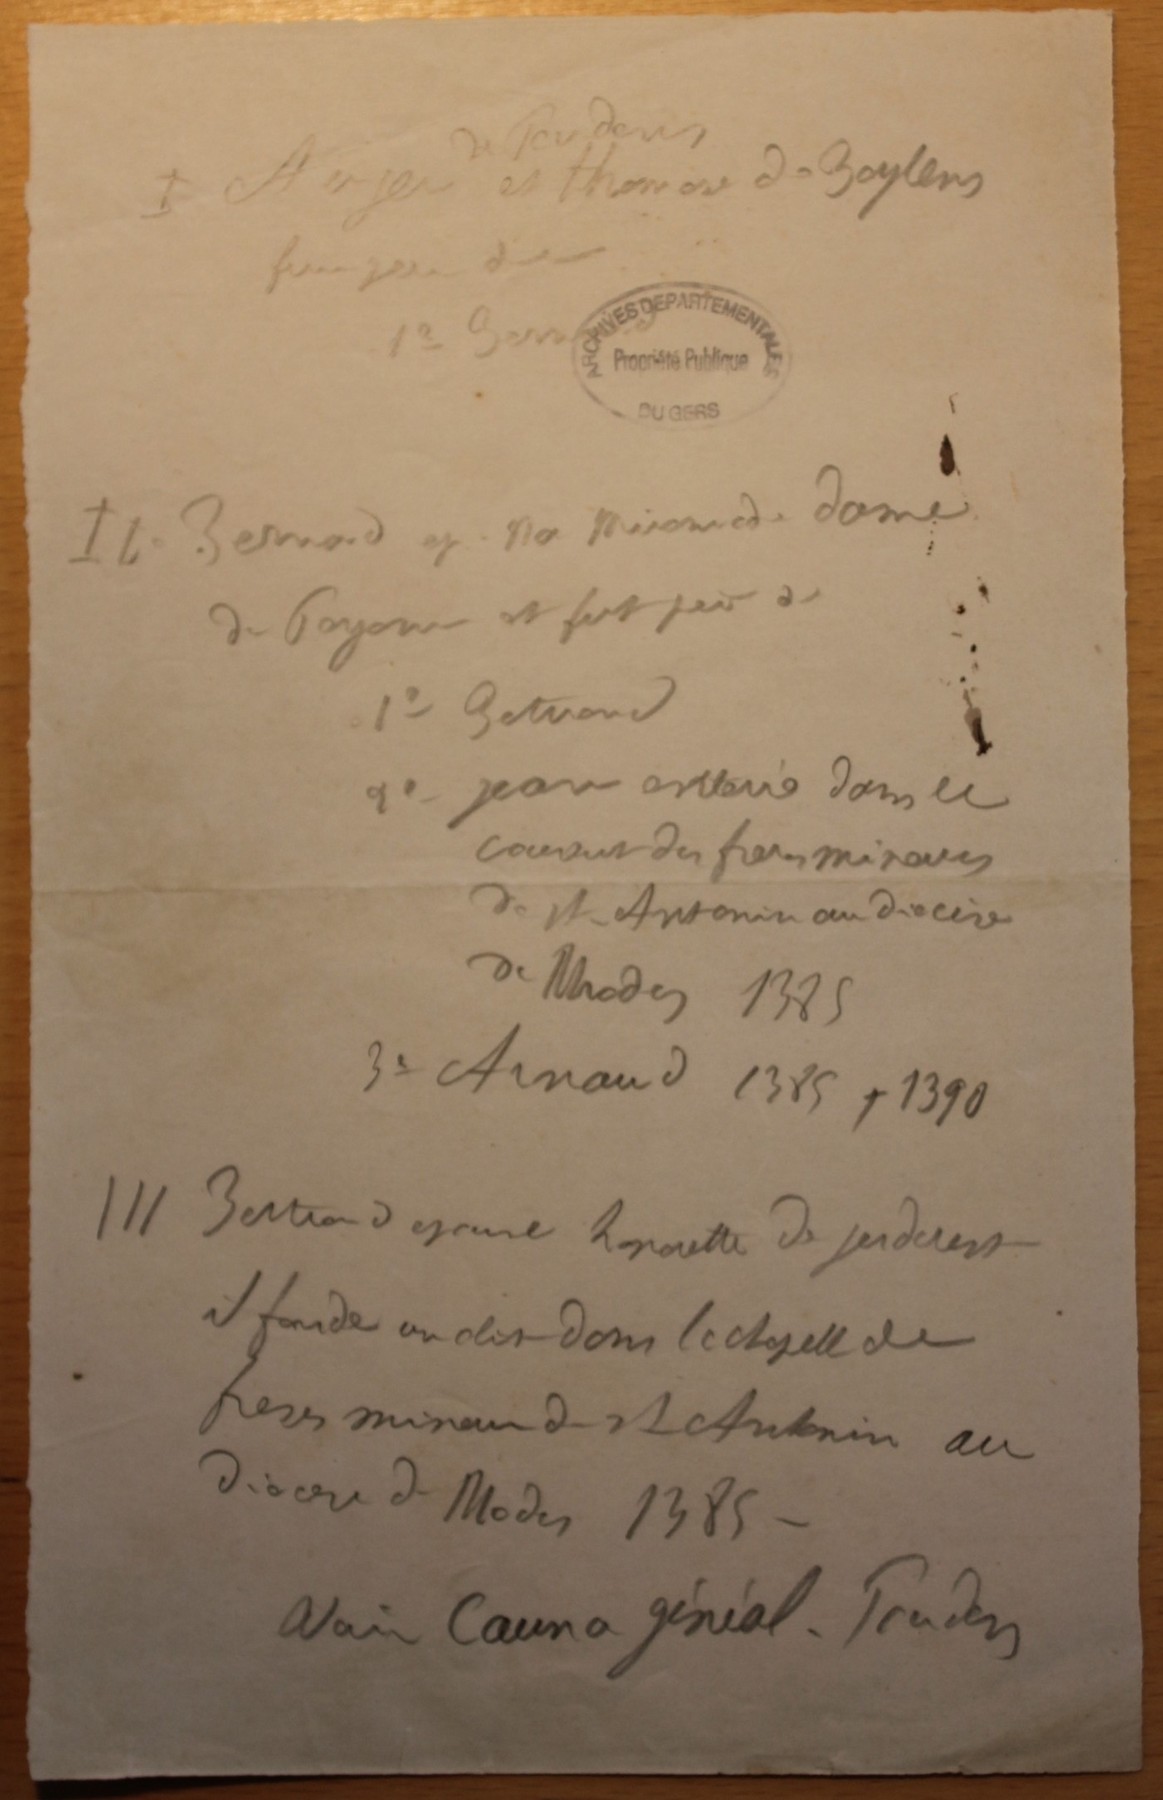 de Poudens
I Auger et thomase de Baylens
furent pere de
1º Bernard
ARCHIVES DEPARTEMENTALES
Propriété Publique
DU GERS
II. Bernard ep. Na Miramonde dame
de Poyane et fut père de
1º Bertrand
2º jean enterré dans le
couvent des freres mineurs
de st Antonin au diocèse
de Rhodes 1385
3º Arnaud 1385 † 1390
III Bertrand epouse honorette de
il fonde un obit dans la chapelle de
freres mineurs de st Antonin au
diocese de Rhodes 1385 -
Voir Cauna généal. Poudens